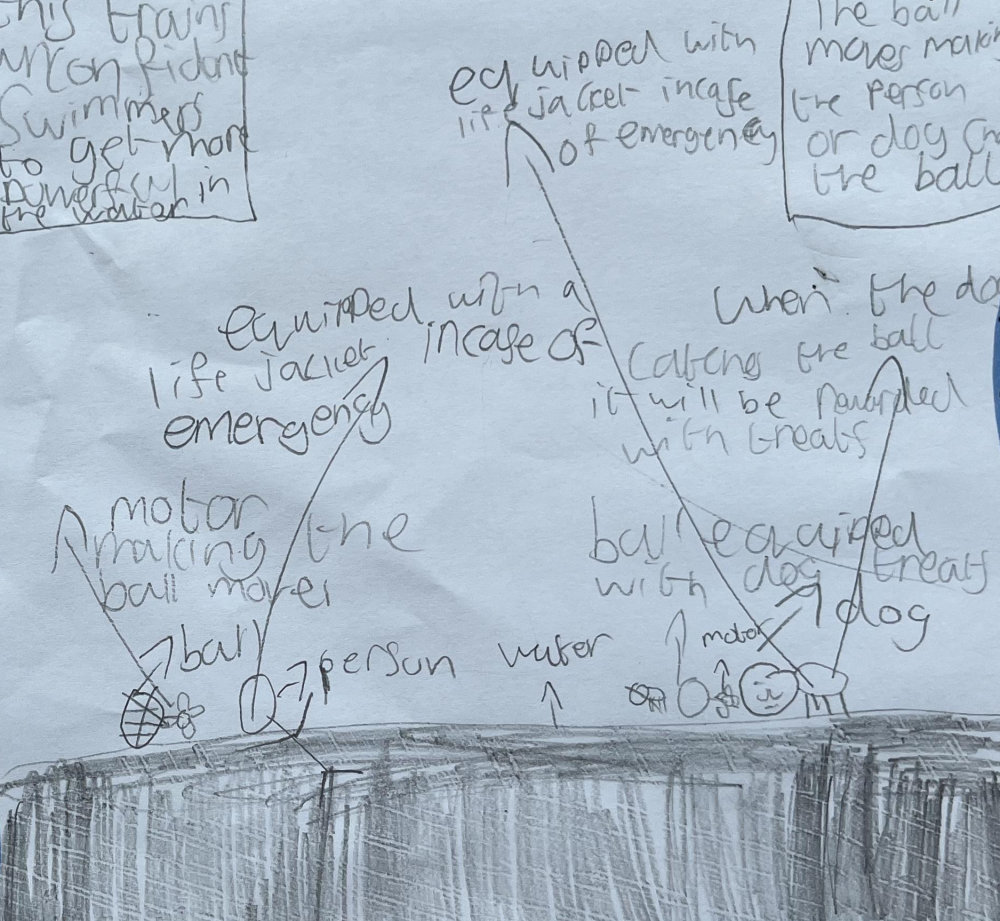 this trains
unconfident
Swimmers
to get more
powerful in
the water
equipped with
life jacket incase
of emergency
The ball
moves making
the person
or dog
the ball
equipped with a
life jacket incase of
emergency
When the do
Catchs the ball
it will be rewarded
with treats
motor
making the
ball moves
ball equiped
with dog treats
ball
person
water
motor
dog